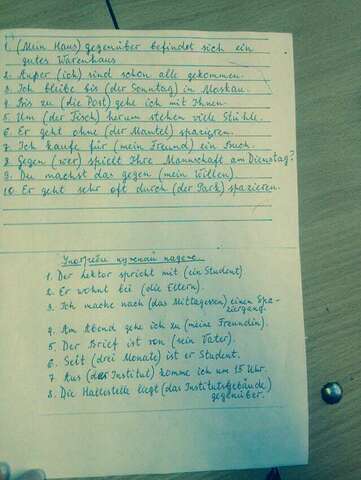 1. (Mein Haus) gegenüber befindet sich ein
gutes Warenhaus
2. Außer (ich) sind schon alle gekommen.
3. Ich bleibe bis (der Sonntag) in Moskau.
4. Bis zu (die Post) gehe ich mit Ihnen.
5. Um (der Tisch) herum stehen viele Stühle.
6. Er geht ohne (der Mantel) spazieren.
7. Ich kaufe für (mein Freund) ein Buch.
8. Gegen (wer) spielt Ihre Mannschaft am Dienstag?
9. Du machst das gegen (mein Willen).
10. Er geht sehr oft durch (der Park) spazieren.
Употреби нужный падеж.
1. Der Lektor spricht mit (ein Student).
2. Er wohnt bei (die Eltern).
3. Ich mache nach (das Mittagessen) einen Spa-
ziergang.
4. Am Abend gehe ich zu (meine Freundin).
5. Der Brief ist von (sein Vater).
6. Seit (drei Monate) ist er Student.
7. Aus (das Institut) komme ich um 15 Uhr.
8. Die Haltestelle liegt (das Institutsgebäude)
gegenüber.